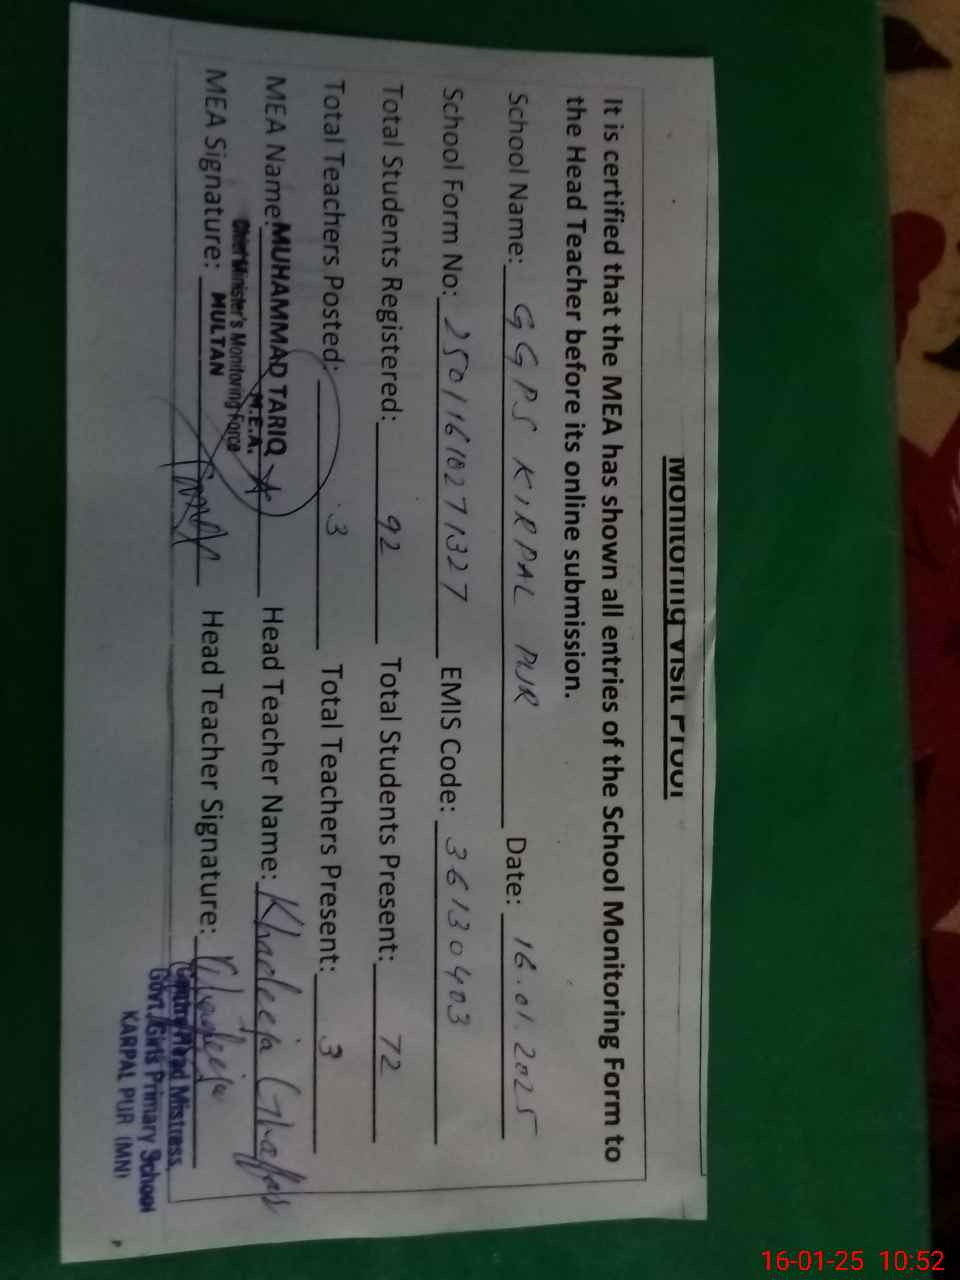 Monitoring Visit Proof
It is certified that the MEA has shown all entries of the School Monitoring Form to
the Head Teacher before its online submission.
School Name: GGPS KIRPAL PUR Date: 16.01.2025
School Form No: 25011610271327 EMIS Code: 36130403
Total Students Registered: 92 Total Students Present: 72
Total Teachers Posted: 3 Total Teachers Present: 3
MEA Name: MUHAMMAD TARIQ Head Teacher Name: Khadeeja Ghaffar
M.E.A.
Chief Minister's Monitoring Force
MULTAN
MEA Signature: Head Teacher Signature: Khadeeja
Head Mistress,
Govt. Girls Primary School
KARPAL PUR (MN)
16-01-25 10:52